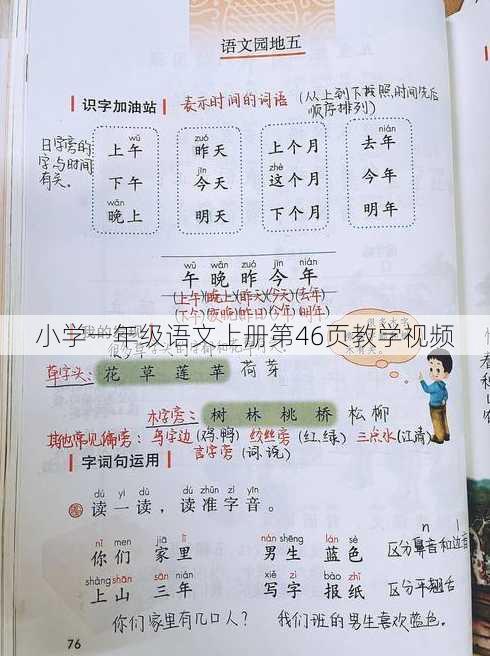 语文园地五
识字加油站 表示时间的词语 (从上到下按照时间先后
顺序排列)
日字旁的
字与时间
有关。
wǔ zuó nián
上午 昨天 上个月 去年
jīn zhè
下午 今天 这个月 今年
wǎn
晚上 明天 下个月 明年
wǔ wǎn zuó jīn nián
午 晚 昨 今 年
(上午)(晚上)(昨天)(今天)(去年)
(下午)(夜晚)(昨日)(今日)(今年)
小学一年级语文上册第46页教学视频
草字头: 花 草 莲 苹 荷 芽
木字旁: 树 林 桃 桥 松 柳
其他常见偏旁: 鸟字边(鸡、鸭) 绞丝旁(红、绿) 三点水(江、清)
言字旁(词、说)
字词句运用
dú yi dú dú zhǔn zì yīn
读一读,读准字音。
n l
nǐ men jiā lǐ nán shēng lán sè
你们 家里 男生 蓝色 区分鼻音和边音
shàng shān sān nián xiě zì bào zhǐ
上山 三年 写字 报纸 区分平翘舌
你们家里有几口人? 我们班的男生喜欢蓝色。
76